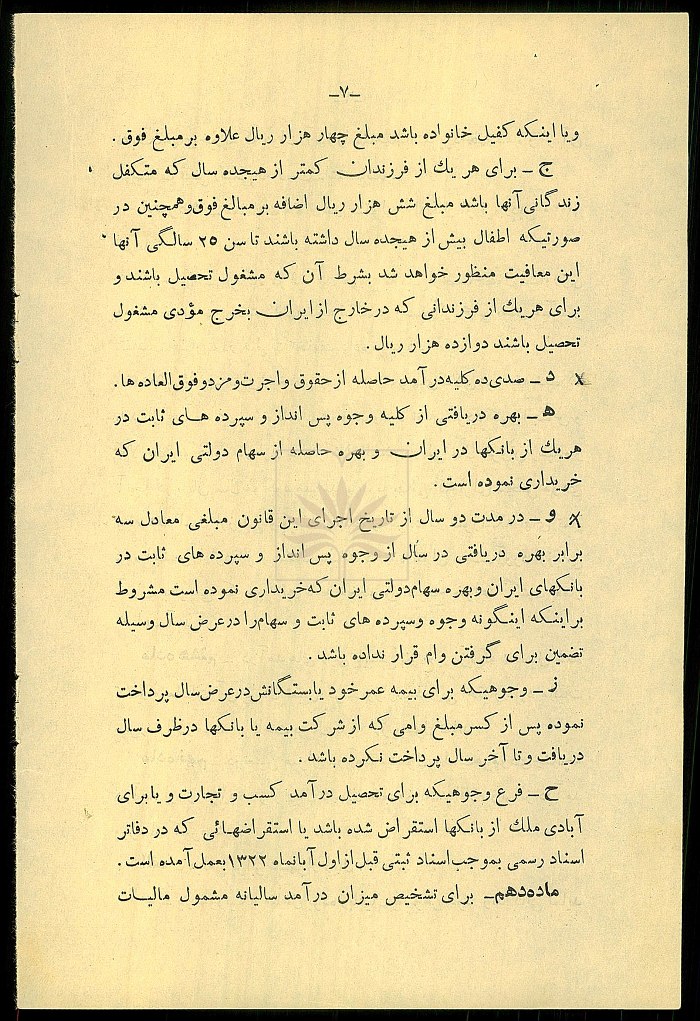 ـ۷ـ
ویا اینکه کفیل خانواده باشد مبلغ چهار هزار ریال علاوه بر مبلغ فوق .
ج ـ برای هر یك از فرزندان کمتر از هیجده سال که متکفل
زندگانی آنها باشد مبلغ شش هزار ریال اضافه بر مبالغ فوق وهمچنین در
صورتیکه اطفال بیش از هیجده سال داشته باشند تا سن ۲۵ سالگی آنها
این معافیت منظور خواهد شد بشرط آن که مشغول تحصیل باشند و
برای هریك از فرزندانی که در خارج از ایران بخرج مؤدی مشغول
تحصیل باشند دوازده هزار ریال .
x د ـ صدی ده کلیه درآمد حاصله از حقوق و اجرت و مزد و فوق العاده ها .
هـ ـ بهره دریافتی از کلیه وجوه پس انداز و سپرده های ثابت در
هریك از بانکها در ایران و بهره حاصله از سهام دولتی ایران که
خریداری نموده است .
x و ـ در مدت دو سال از تاریخ اجرای این قانون مبلغی معادل سه
برابر بهره دریافتی در سال از وجوه پس انداز و سپرده های ثابت در
بانکهای ایران و بهره سهام دولتی ایران که خریداری نموده است مشروط
براینکه اینگونه وجوه وسپرده های ثابت و سهام را در عرض سال وسیله
تضمین برای گرفتن وام قرار نداده باشد .
ز ـ وجوهیکه برای بیمه عمر خود یا بستگانش در عرض سال پرداخت
نموده پس از کسر مبلغ وامی که از شرکت بیمه یا بانکها در ظرف سال
دریافت و تا آخر سال پرداخت نکرده باشد .
ح ـ فرع وجوهیکه برای تحصیل درآمد کسب و تجارت و یا برای
آبادی ملك از بانکها استقراض شده باشد یا استقراضهائی که در دفاتر
اسناد رسمی بموجب اسناد ثبتی قبل از اول آبانماه ۱۳۲۲ بعمل آمده است .
ماده دهم ـ برای تشخیص میزان درآمد سالیانه مشمول مالیات